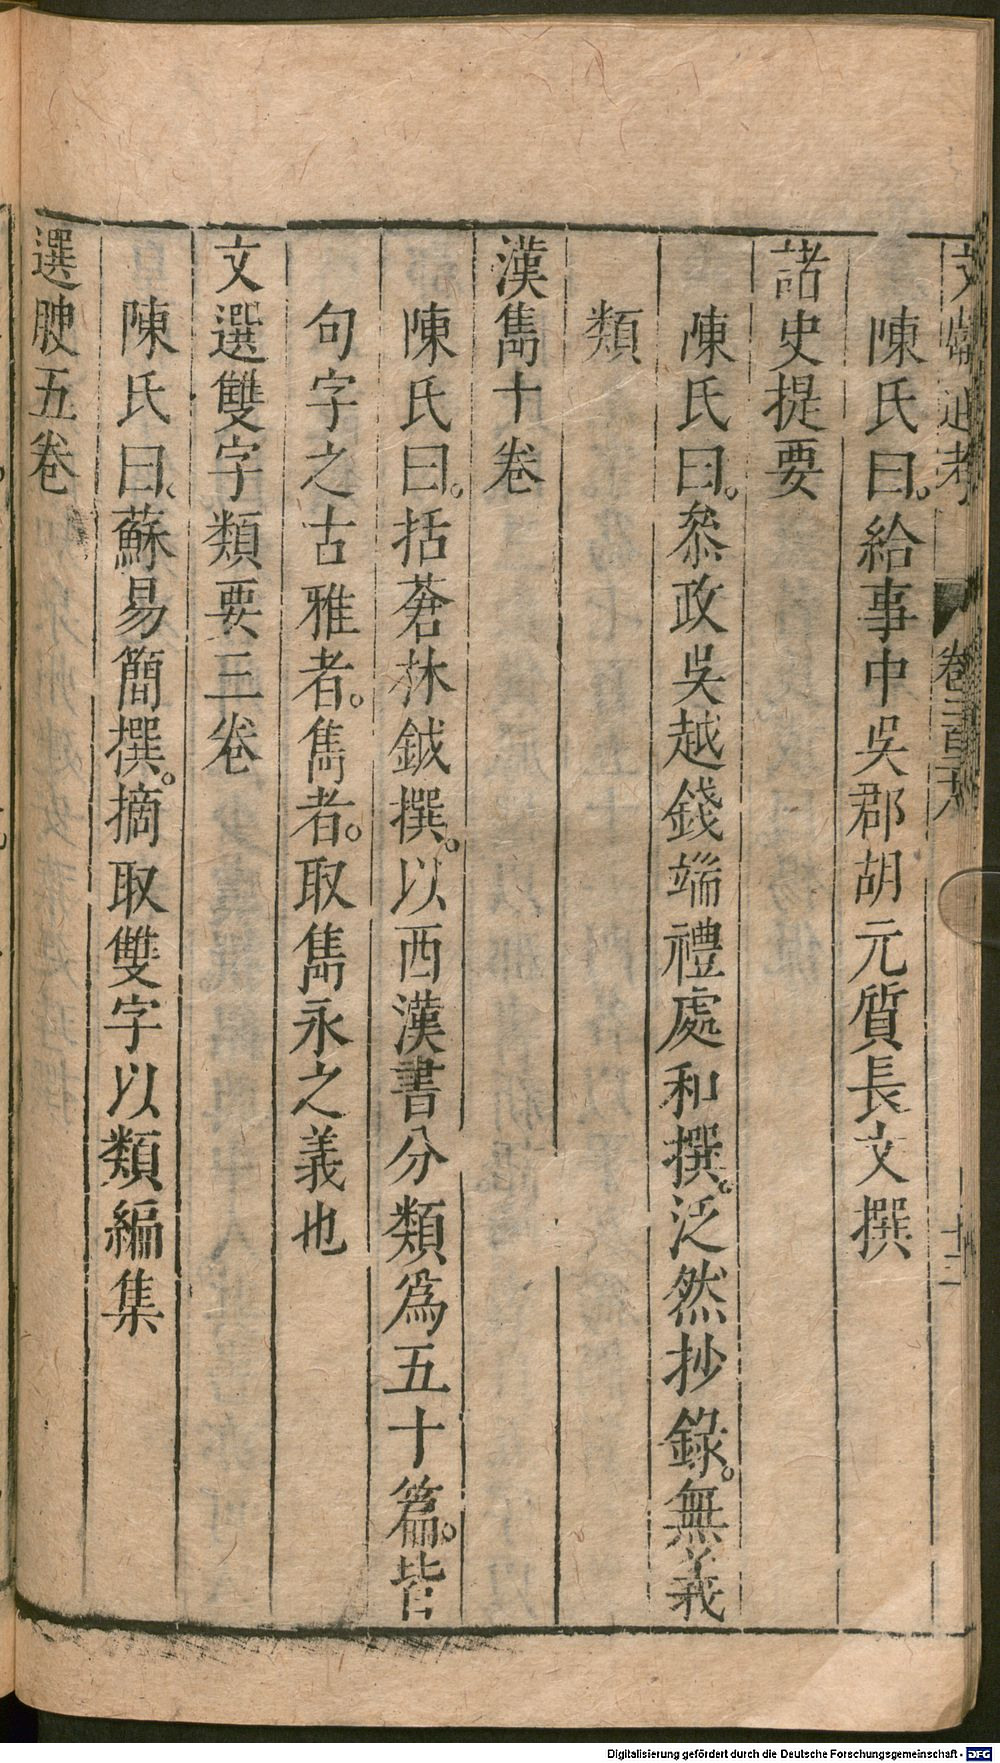 文獻通考 卷二百二十八 十二
陳氏曰。給事中吳郡胡元質長文撰
諸史提要
陳氏曰。叅政吳越錢端禮處和撰。泛然抄錄。無義
類
漢雋十卷
陳氏曰。括蒼林鉞撰。以西漢書分類爲五十篇。皆
句字之古雅者。雋者。取雋永之義也
文選雙字類要三卷
陳氏曰。蘇易簡撰。摘取雙字以類編集
選腴五卷
Digitalisierung gefördert durch die Deutsche Forschungsgemeinschaft - DFG